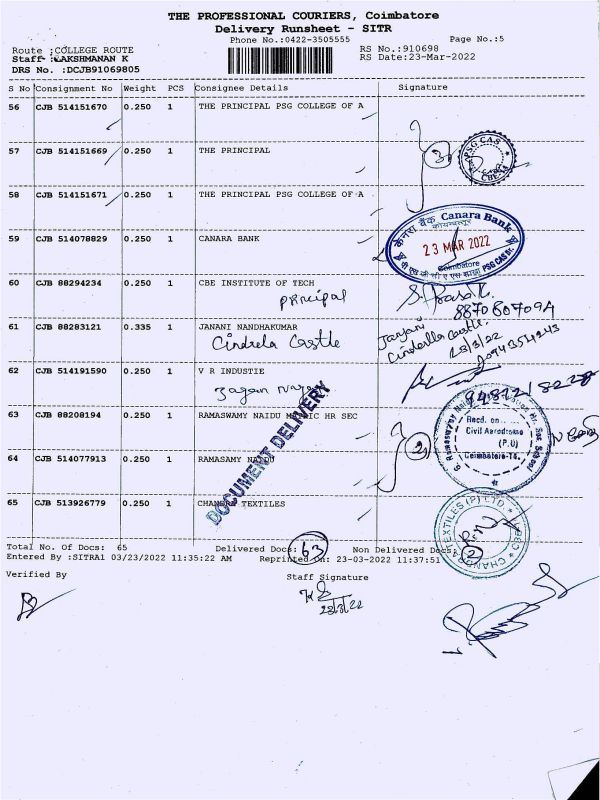 THE PROFESSIONAL COURIERS, Coimbatore
Delivery Runsheet - SITR
Phone No.:0422-3505555 Page No.:5
Route :COLLEGE ROUTE RS No.:910698
Staff :LAKSHMANAN K RS Date:23-Mar-2022
DRS No. :DCJB91069805
S No Consignment No Weight PCS Consignee Details Signature
56 CJB 514151670 0.250 1 THE PRINCIPAL PSG COLLEGE OF A
57 CJB 514151669 0.250 1 THE PRINCIPAL
3
PSG CAS
58 CJB 514151671 0.250 1 THE PRINCIPAL PSG COLLEGE OF A
केनरा बैंक Canara Bank
कोयम्बत्तूर
23 MAR 2022
Coimbatore
PSG CAS Br.
59 CJB 514078829 0.250 1 CANARA BANK
60 CJB 88294234 0.250 1 CBE INSTITUTE OF TECH
principal
61 CJB 88283121 0.335 1 JANANI NANDHAKUMAR
Cindrela Castle
Janani
Cinderlla Castle
23/3/22
62 CJB 514191590 0.250 1 V R INDUSTIE
63 CJB 88208194 0.250 1 RAMASWAMY NAIDU MATRIC HR SEC
DOCUMENT DELIVERY
Recd. on
Civil Aerodrome
(P.O)
Coimbatore-14.
2
64 CJB 514077913 0.250 1 RAMASAMY NAIDU
65 CJB 513926779 0.250 1 CHANDRA TEXTILES
CHANDRA TEXTILES (P) LTD.
Total No. Of Docs: 65 Delivered Docs: 63 Non Delivered Docs: 2
Entered By :SITRA1 03/23/2022 11:35:22 AM Reprinted on: 23-03-2022 11:37:51
Verified By Staff Signature
23/3/22